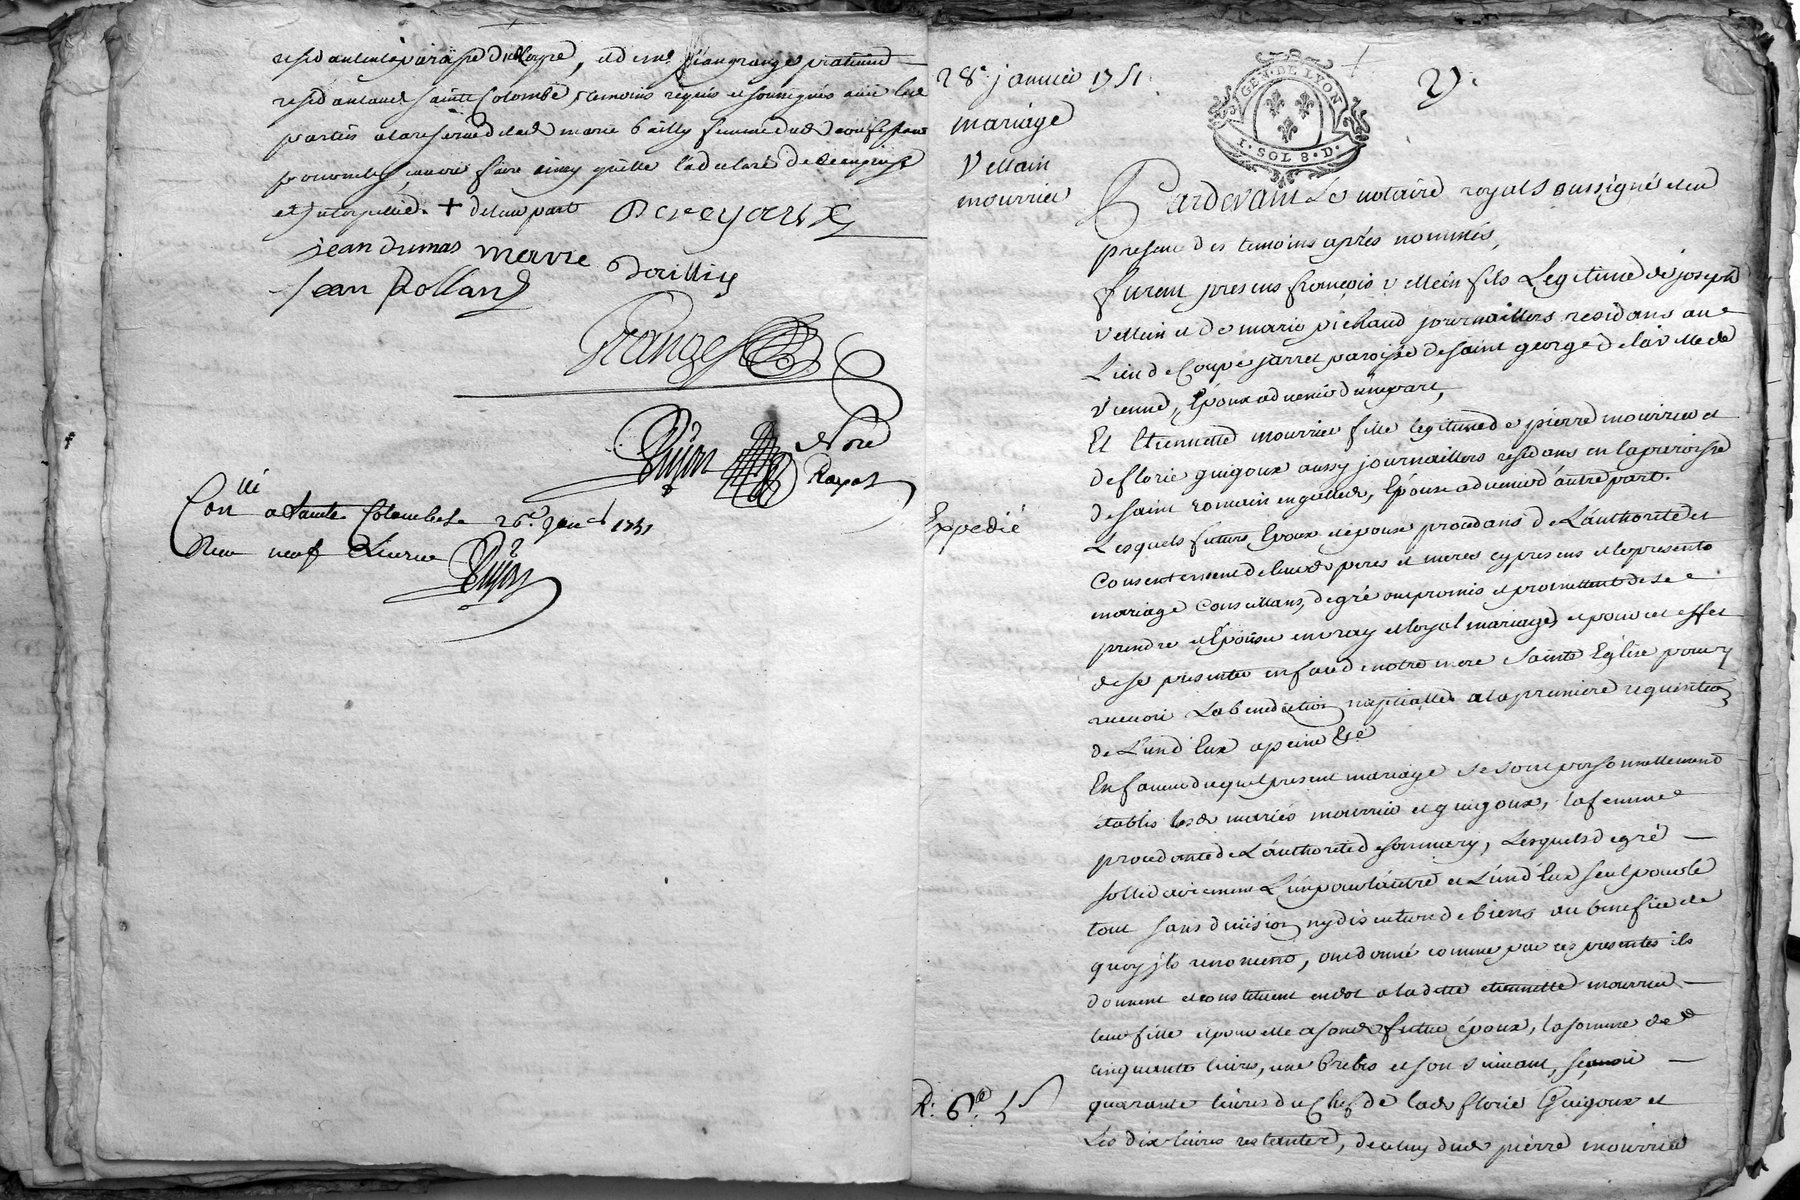 residant en la paroisse
residant aud sainte Colombe, temoins requis et soussignés avec les
parties a la reserve de lad marie bailly femme dud
pour ne scavoir faire ainsy qu'elle l'a declaré de ce enquise
et interpellée. + delau part Deveyaux
jean dumas marie bailly
jean Rolland
Grange
Dujon Nore
Royal
Con.lle a Sainte Colombe le 26.e janv.r 1751
Receu neuf Livres
Dujon
28e janvier 1751.
mariage
Vellein
mourrier
Expedié
R: 6.# 5 s
GEN. DE LYON
1. SOL 8. D.
Pardevant Le notaire royal soussigné et en
presence des temoins après nommés,
furent presens françois vellein fils Legitime de joseph
vellein et de marie pichaud journalliers residans au
Lieu de Coupe jarret paroisse de saint george de la ville de
vienne, Epoux advenir d'une part,
Et Etiennette mourrier fille legitime de pierre mourrier et
de florie guigoux aussy journalliers residans en la paroisse
de saint romain en gallier, Epouse advenir d'autre part.
Lesquels futurs Epoux et epouse procedans de L'authorité et
Consentement de leurs peres et meres cy presens et le present
mariage conseillans, de gré ont promis et promettent de se
prendre et Epouser en vray et loyal mariage et pour cet effet
de se presenter en face de notre mere Sainte Eglise pour y
recevoir La benediction nuptialle a la premiere requisition
de L'un d'Eux a peine &c
En faveur duquel present mariage se sont personnellement
établis lesd mariés mourrier et guigoux, la femme
procedante de L'authorité de son mary, Lesquels de gré
sollidairement L'un pour l'autre et L'un d'Eux seul pour le
tout sans division ny discution de biens au benefice de
quoy ils renoncent, ont donné comme par ces presentes ils
donnent et constituent en dot a la dite etiennette mourrier
leur fille et pour elle a sond futur époux, la somme de
cinquante livres, une brebis et son suivant, scavoir
quarante livres du Chef de lad florie Guigoux et
Les dix livres restantes, de celuy dud pierre mourrier